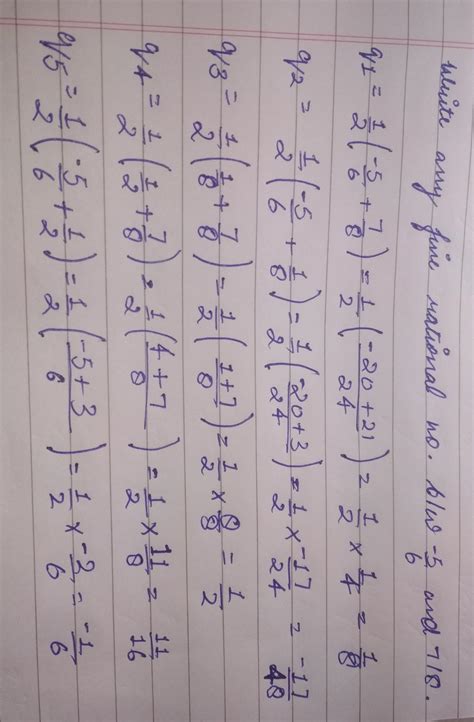 write any five rational no. b/w -5/6 and 7/8.
q1 = 1/2 (-5/6 + 7/8) = 1/2 (-20+21/24) = 1/2 × 1/4 = 1/8
q2 = 1/2 (-5/6 + 1/8) = 1/2 (-20+3/24) = 1/2 × -17/24 = -17/48
q3 = 1/2 (1/8 + 7/8) = 1/2 (1+7/8) = 1/2 × 8/8 = 1/2
q4 = 1/2 (1/2 + 7/8) = 1/2 (4+7/8) = 1/2 × 11/8 = 11/16
q5 = 1/2 (-5/6 + 1/2) = 1/2 (-5+3/6) = 1/2 × -2/6 = -1/6